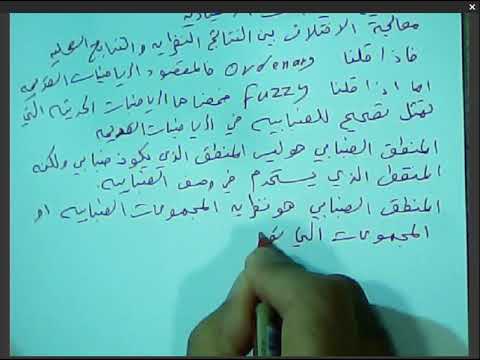 معالجة الاختلاف بين النتائج النظرية والنتائج العملية
فاذا قلنا Ordenary فالمقصود الرياضيات القديمه
اما اذا قلنا Fuzzy فمعناها الرياضيات الحديثه التي
تمثل تصحيح للضبابيه في الرياضيات القديمه
المنطق الضبابي هو ليس المنطق الذي يكون ضبابي ولكنه
المنطق الذي يستخدم في وصف الضبابيه.
المنطق الضبابي هو نظريه المجموعات الضبابيه او
المجموعات التي